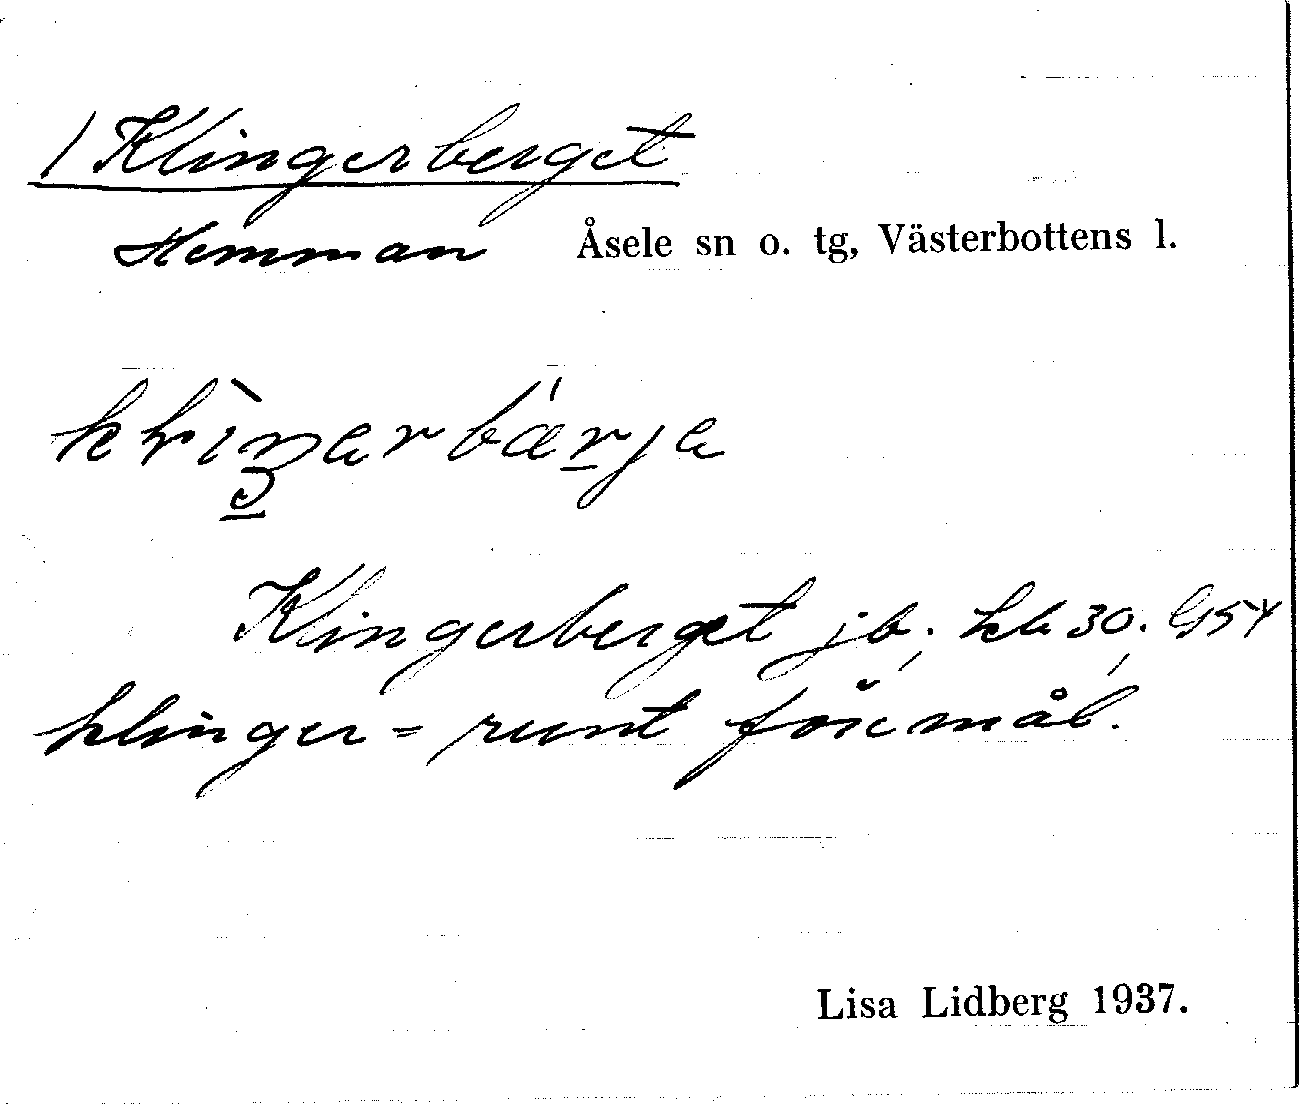 1 Klingerberget
Hemman Åsele sn o. tg, Västerbottens l.
Klingerberget jb; kb 30; G 54
klinger = runt föremål.
Lisa Lidberg 1937.